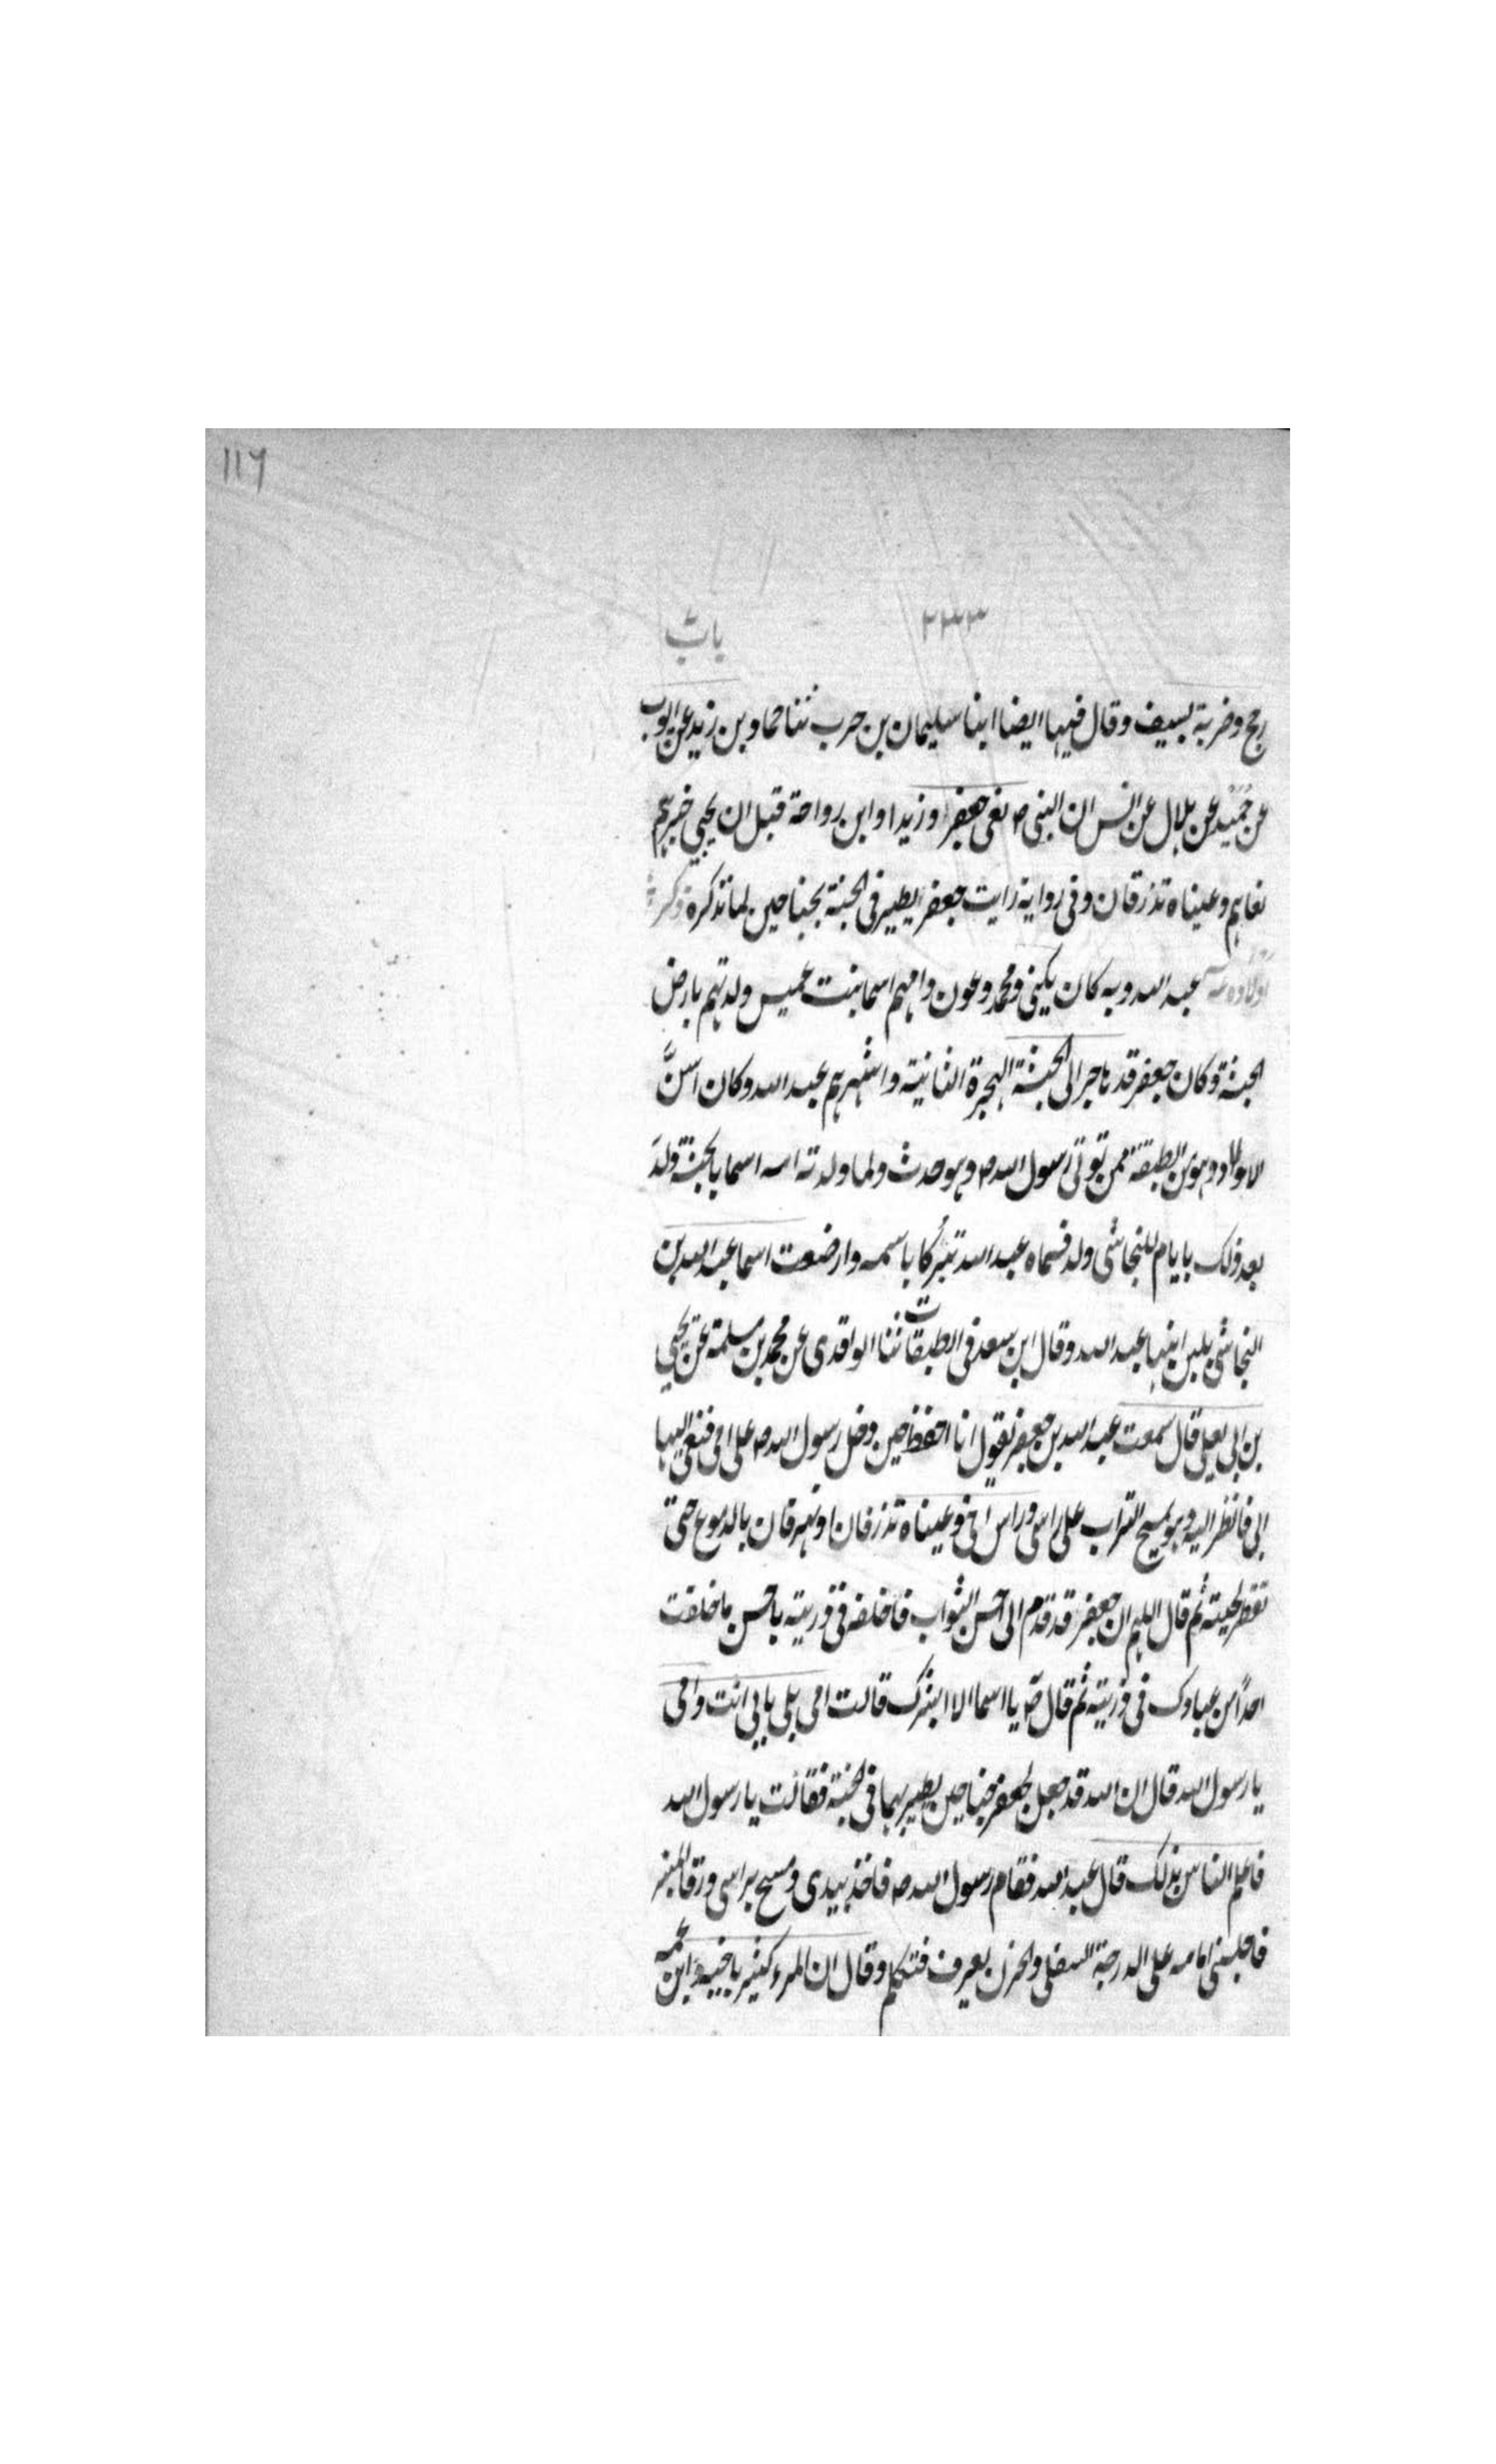 116
٢٣٣ باب
رمح وضربة بسيف وقال فيها ايضا ابنا سليمان بن حرب ثنا حماد بن زيد عن ايوب
عن حميد عن بلال عن انس ان النبي ص نعى جعفرا وزيدا وابن رواحة قبل ان يجيى خبرهم
نعاهم وعيناه تذرفان وفى رواية رايت جعفرا يطير فى الجنة بجناحين لما تذكره ذكر
اولاده عبد الله وبه كان يكنى ومحمد وعون وامهم اسما بنت عميس ولدتهم بارض
الحبشة وكان جعفر قد هاجر الى الحبشة الهجرة الثانية واشهرهم عبد الله وكان اسنّ
الاولاد وهو من الطبقة ممن توفى رسول الله ص وهو حدث ولما ولدته امه اسما بالحبشة ولد
بعد ذلك بايام للنجاشى ولد فسماه عبد الله تبركا باسمه وارضعت اسما عبد الله بن
النجاشى بلبن ابنها عبد الله وقال ابن سعد فى الطبقات ثنا الواقدى عن محمد بن مسلمة عن يحيى
بن ابى يعلى قال سمعت عبد الله بن جعفر يقول انا احفظ حين دخل رسول الله ص على امى فنعى اليها
ابى فانظر اليه وهو يمسح التراب على راسى وراس اخى وعيناه تذرفان او تهرقان بالدموع حتى
تقطر لحيته ثم قال اللهم ان جعفرا قد قدم الى احسن الثواب فاخلفه فى ذريته باحسن ما خلفت
احدا من عبادك فى ذريته ثم قال ص يا اسما الا ابشرك قالت امى بلى بابى انت وامى
يا رسول الله قال ان الله قد جعل لجعفر جناحين يطير بهما فى الجنة فقالت يا رسول الله
فاعلم الناس بذلك قال عبد الله فقام رسول الله ص فاخذ بيدى ومسح براسى ورقا المنبر
فاجلسنى امامه على الدرجة السفلى والحزن يعرف فتكلم وقال ان المرء كثير باخيه وابن عمه